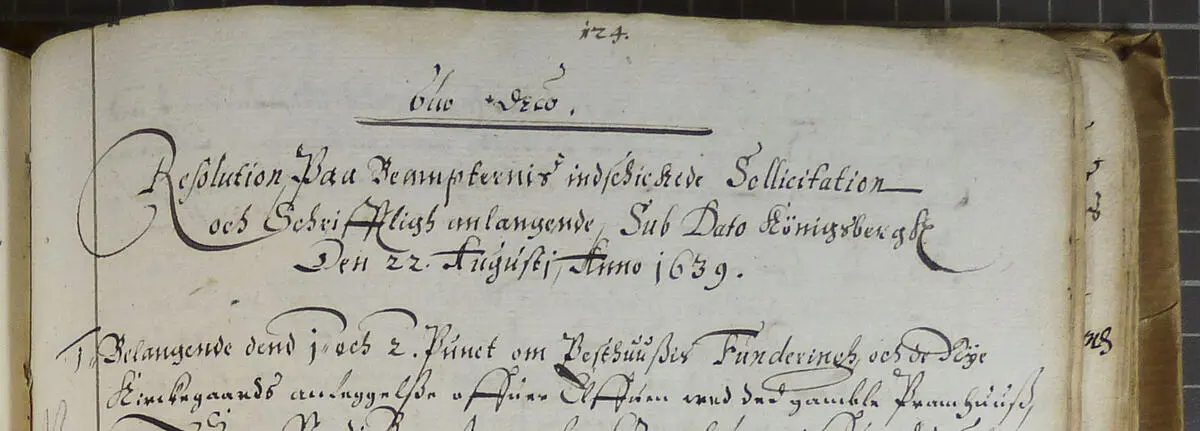 124.
Resolution, Paa Beampternis indschickede Sollicitation
och Schriffttligh anlangende, Sub Dato Königsbergk
Den 22. Augusti, Anno 1639.
1. Belangende dend 1. och 2. Punct om Pesthuußis Funderingh, och de Nÿe
Kirckegaards anleggelße offuer Elffuen wed ded gamble Pramhuuß,